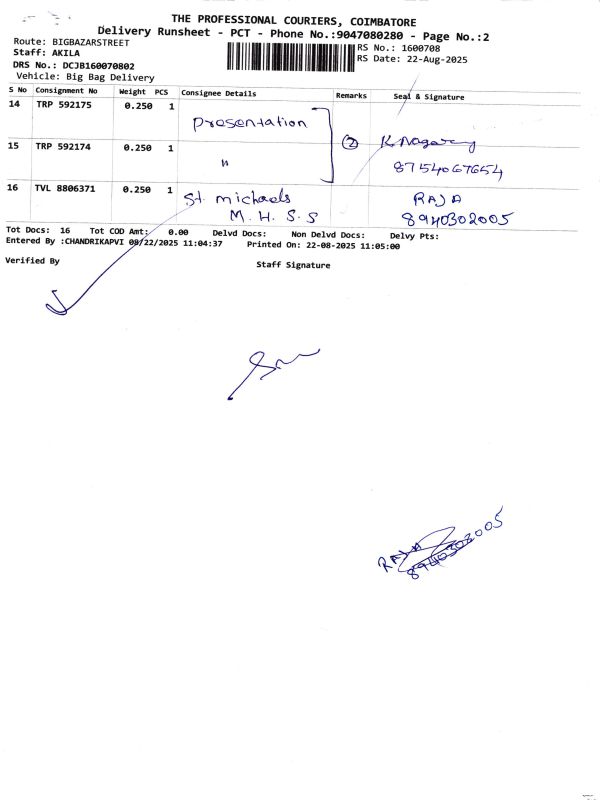 THE PROFESSIONAL COURIERS, COIMBATORE
Delivery Runsheet - PCT - Phone No.:9047080280 - Page No.:2
Route: BIGBAZARSTREET
RS No.: 1600708
Staff: AKILA
RS Date: 22-Aug-2025
DRS No.: DCJB160070802
Vehicle: Big Bag Delivery
S No Consignment No Weight PCS Consignee Details Remarks Seal & Signature
14 TRP 592175 0.250 1 Presentation
15 TRP 592174 0.250 1 " 2
8754067654
16 TVL 8806371 0.250 1 St. michaels RAJA
M. H. S. S 8940302005
Tot Docs: 16 Tot COD Amt: 0.00 Delvd Docs: Non Delvd Docs: Delvy Pts:
Entered By :CHANDRIKAPVI 08/22/2025 11:04:37 Printed On: 22-08-2025 11:05:00
Verified By Staff Signature
RAJA
8940302005